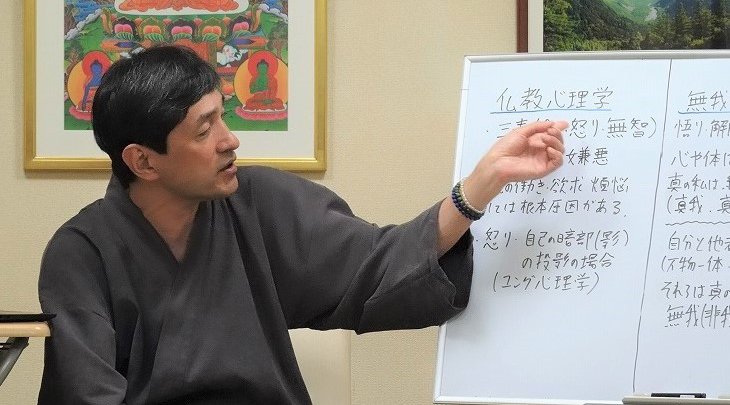 仏教心理学
・三 怒り・無智)
嫌悪
の働き・欲求 煩悩
には根本原因がある.
・怒り・自己の暗部(影)
の投影の場合
(ユング心理学)
無我
悟り・解
心や体は
真の私は、
(真我、真
自分と他
(万物一体
それらは真の
無我(非我